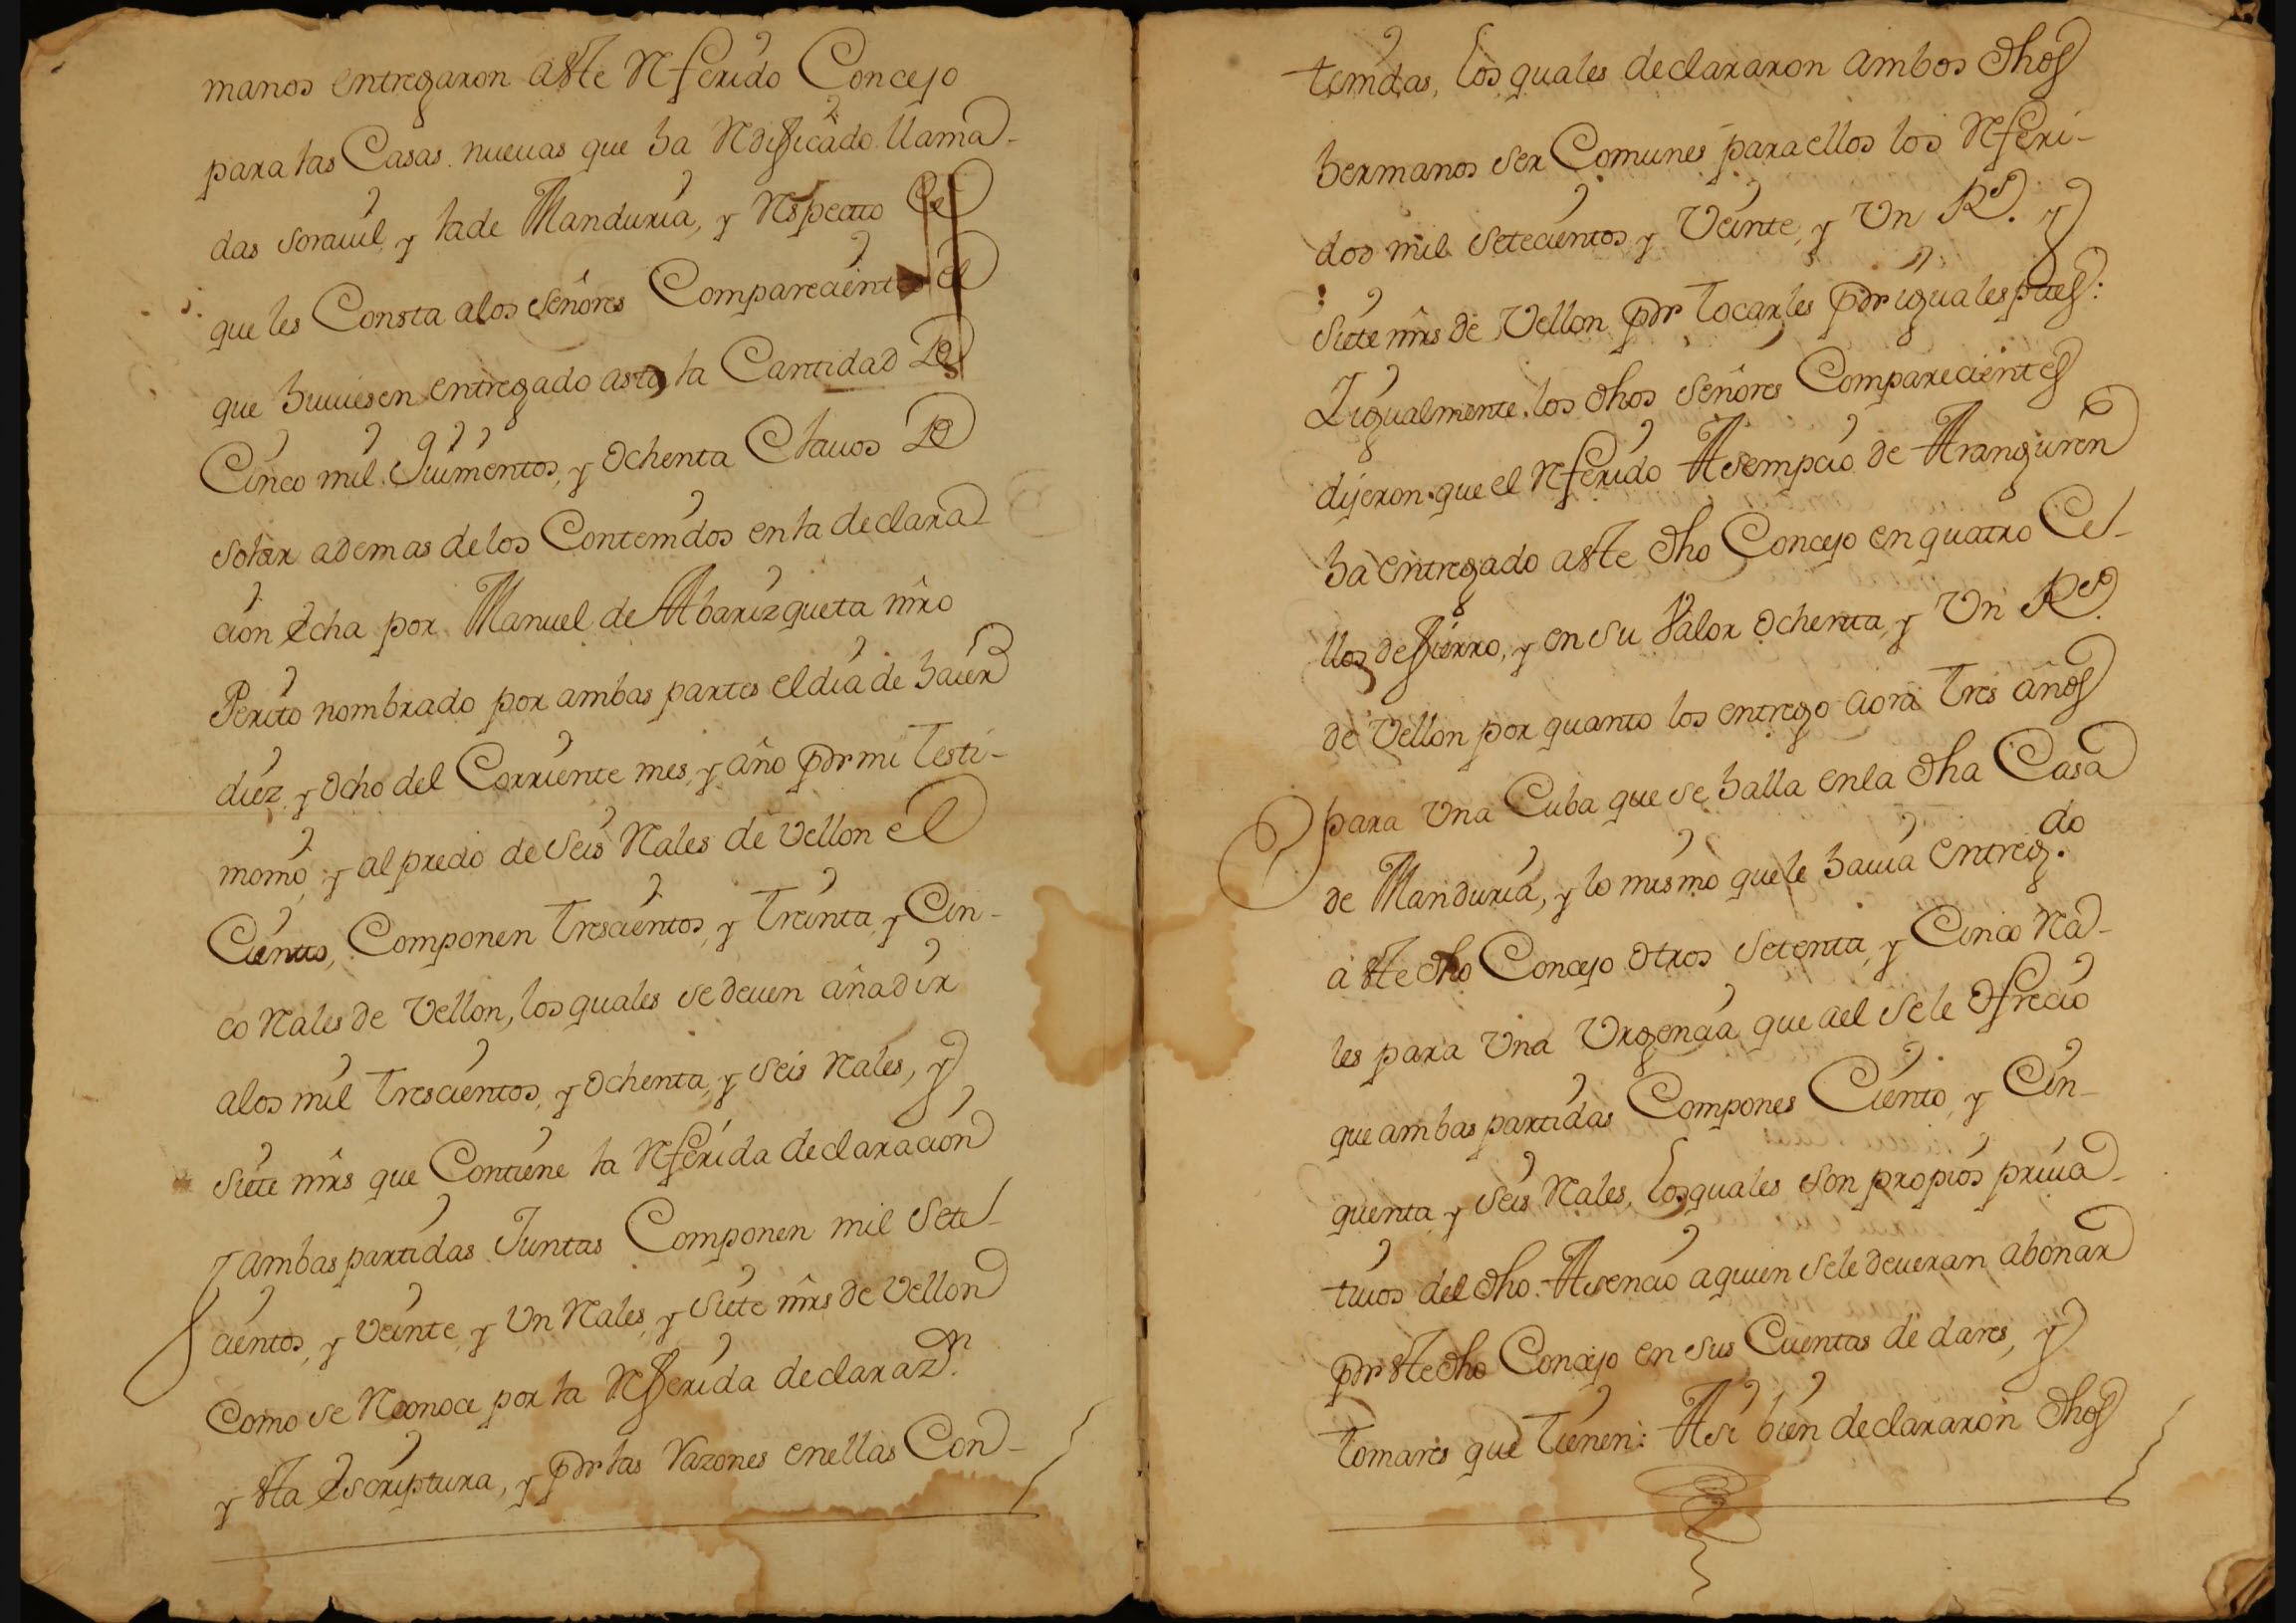 manos entregaron aeste Referido Concejo
para las Casas nueuas que ha Redificado llama-
das soravil, y la de Manduria, y Respecto de
que les Consta alos señores Comparecientes el
que huuiesen entregado asta la Cantidad de
Cinco mil Quinientos, y ochenta Clauos de
solar ademas delos Contenidos en la declara
cion Echa por Manuel de Abarizqueta mro
Perito nombrado por ambas partes el dia de hacer
diez, y ocho del Corriente mes, y año por mi testi-
monio, y al precio de seis Reales de vellon el
Ciento, Componen trescientos, y treinta, y Cin-
co Reales de Vellon, los quales se deuen añadir
alos mil trescientos, y ochenta, y seis Reales, y
siete mrs que Contiene la Referida declaracion
y ambas partidas Juntas Componen mil sete-
cientos, y veinte, y Un Reales, y siete mrs de vellon
Como se Reconoce por la Referida declarazn.
y esta Escriptura, y por las Razones en ellas Con-
tenidas, los quales declararon ambos dhos
hermanos ser Comunes para ellos los Referi-
dos mil setecientos, y Veinte, y Un Rs. y
siete mrs de Vellon por tocarles por iguales ptes:
Y igualmente los dhos señores Comparecientes
dijeron que el Referido Asempcio de Aranguren
ha entregado aeste dho Concejo en quatro Ce-
llos de fierro, y en su Valor ochenta, y Un Rs.
de Vellon por quanto los entrego aora tres años
para Una Cuba que se halla en la dha Casa
de Manduria, y lo mismo que le hauia entreg.do
a este dho Concejo otros setenta, y Cinco Rea-
les para Una Urgencia que ael se le ofrecio
que ambas partidas Compones Ciento, y Cin-
quenta, y seis Reales, los quales son propios priua-
tiuos del dho Asencio a quien se le deueran abonar
por este dho Concejo en sus Cuentas de dares, y
tomares que tienen: Asi bien declararon dhos